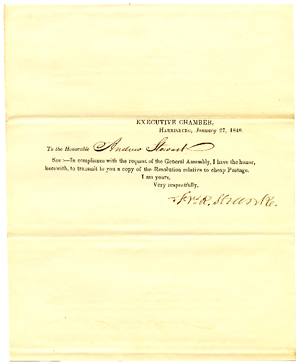 EXECUTIVE CHAMBER,
HARRISBURG, January 27, 1848.
To the Honorable Andrew Stewart
SIR:—In compliance with the request of the General Assembly, I have the honor,
herewith, to transmit to you a copy of the Resolution relative to cheap Postage.
I am yours,
Very respectfully,
Frs. R. Shunk.